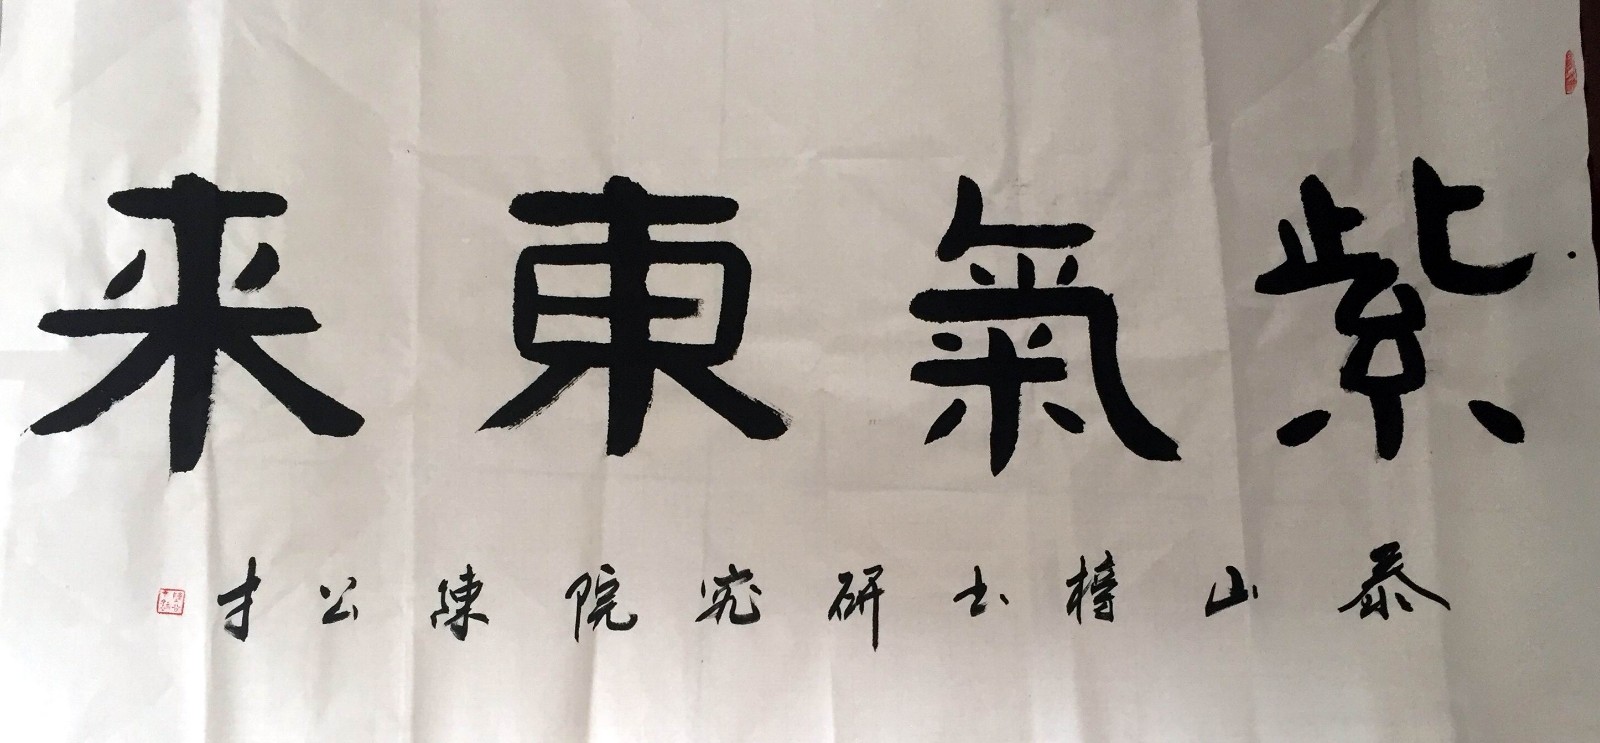 紫氣東来
泰山榜书研究院陳公才